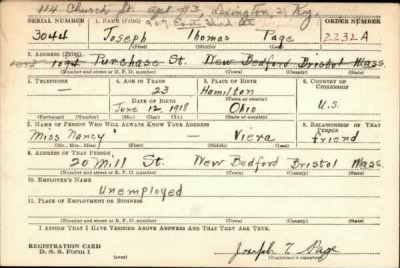 114 Church St. apt #3, Lexington, 21 Ky.
SERIAL NUMBER 1. NAME (Print) ORDER NUMBER
3044 Joseph Thomas Page 2232A
(First) (Middle) (Last)
2. ADDRESS (Print)
1094 Purchase St. New Bedford Bristol Mass.
(Number and street or R. F. D. number) (Town) (County) (State)
3. TELEPHONE 4. AGE IN YEARS 5. PLACE OF BIRTH 6. COUNTRY OF CITIZENSHIP
— 23 Hamilton
DATE OF BIRTH (Town or county)
June 12 1918 Ohio U.S.
(Exchange) (Number) (Mo.) (Day) (Yr.) (State or country)
7. NAME OF PERSON WHO WILL ALWAYS KNOW YOUR ADDRESS 8. RELATIONSHIP OF THAT PERSON
Miss Nancy — Viera friend
(Mr., Mrs., Miss) (First) (Middle) (Last)
9. ADDRESS OF THAT PERSON
20 Mill St. New Bedford Bristol Mass.
(Number and street or R. F. D. number) (Town) (County) (State)
10. EMPLOYER'S NAME
Unemployed
11. PLACE OF EMPLOYMENT OR BUSINESS
(Number and street or R. F. D. number) (Town) (County) (State)
I AFFIRM THAT I HAVE VERIFIED ABOVE ANSWERS AND THAT THEY ARE TRUE.
REGISTRATION CARD
D. S. S. Form 1 Joseph T. Page
(Registrant's signature)